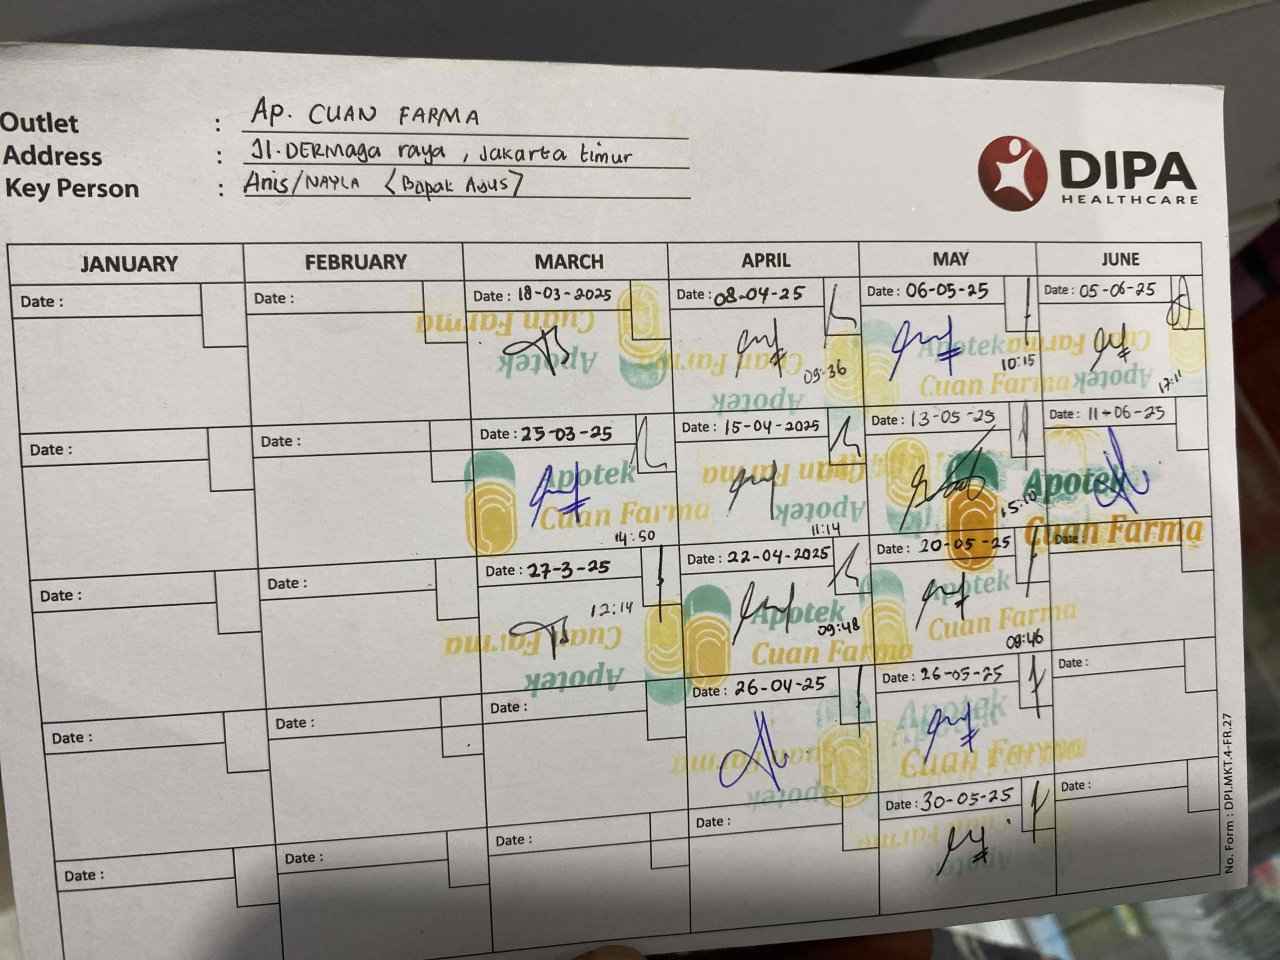 Outlet : Ap. CUAN FARMA
Address : Jl. DERMAga raya , Jakarta timur
Key Person : Anis/NAYLA (Bapak Agus)
DIPA
HEALTHCARE
JANUARY FEBRUARY MARCH APRIL MAY JUNE
Date : Date : Date : 18-03-2025 Date : 08-04-25 Date : 06-05-25 Date : 05-06-25
Cuan Farma Cuan Farma Apotek Cuan Farma
Apotek Apotek Cuan Farma Apotek
09:36 10:15 17:11
Date : Date : Date : 25-03-25 Date : 15-04-2025 Date : 13-05-25 Date : 11-06-25
Apotek Cuan Farma Apotek
Cuan Farma Apotek Cuan Farma
14:50 11:14 15:10
Date : Date : Date : 27-3-25 Date : 22-04-2025 Date : 20-05-25 Date :
12:14
Cuan Farma Apotek Apotek
Apotek Cuan Farma Cuan Farma
09:48 09:46
Date : Date : Date : Date : 26-04-25 Date : 26-05-25 Date :
Cuan Farma Apotek
Apotek Cuan Farma
Date : Date : Date : Date : Date : 30-05-25 Date :
Cuan Farma
Apotek
No. Form : DPI.MKT.4-FR.27